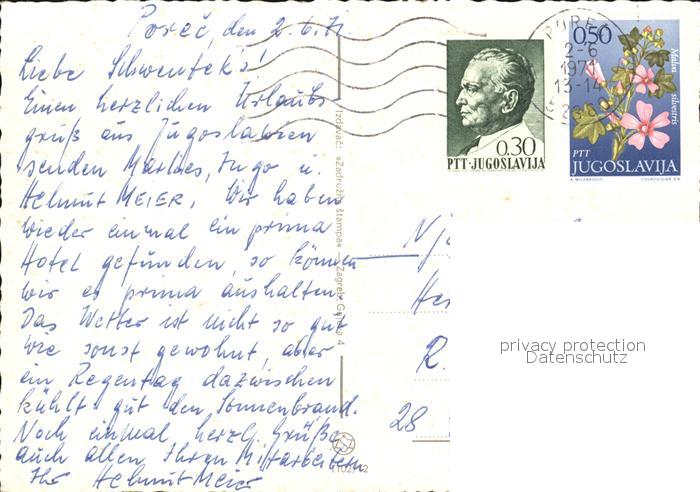 Poreč, den 2.6.71.
Liebe Schwentek's!
Einen herzlichen Urlaubs-
gruß aus Jugoslawien
senden Marlies, Ingo u.
Helmut MEIER. Wir haben
wieder einmal ein prima
Hotel gefunden, so können
wir es prima aushalten.
Das Wetter ist nicht so gut
wie sonst gewohnt, aber
ein Regentag dazwischen
kühlt gut den Sonnenbrand.
Noch einmal herzl. Grüße
auch allen Ihren Mitarbeitern
Ihr Helmut Meier
Izdavač: »Zadružna štampa« — Zagreb
4
POREČ
2-6
1971
13-14
0.30
PTT·JUGOSLAVIJA
0,50
Malva silvestris
PTT
JUGOSLAVIJA
He
R.
28
privacy protection
Datenschutz